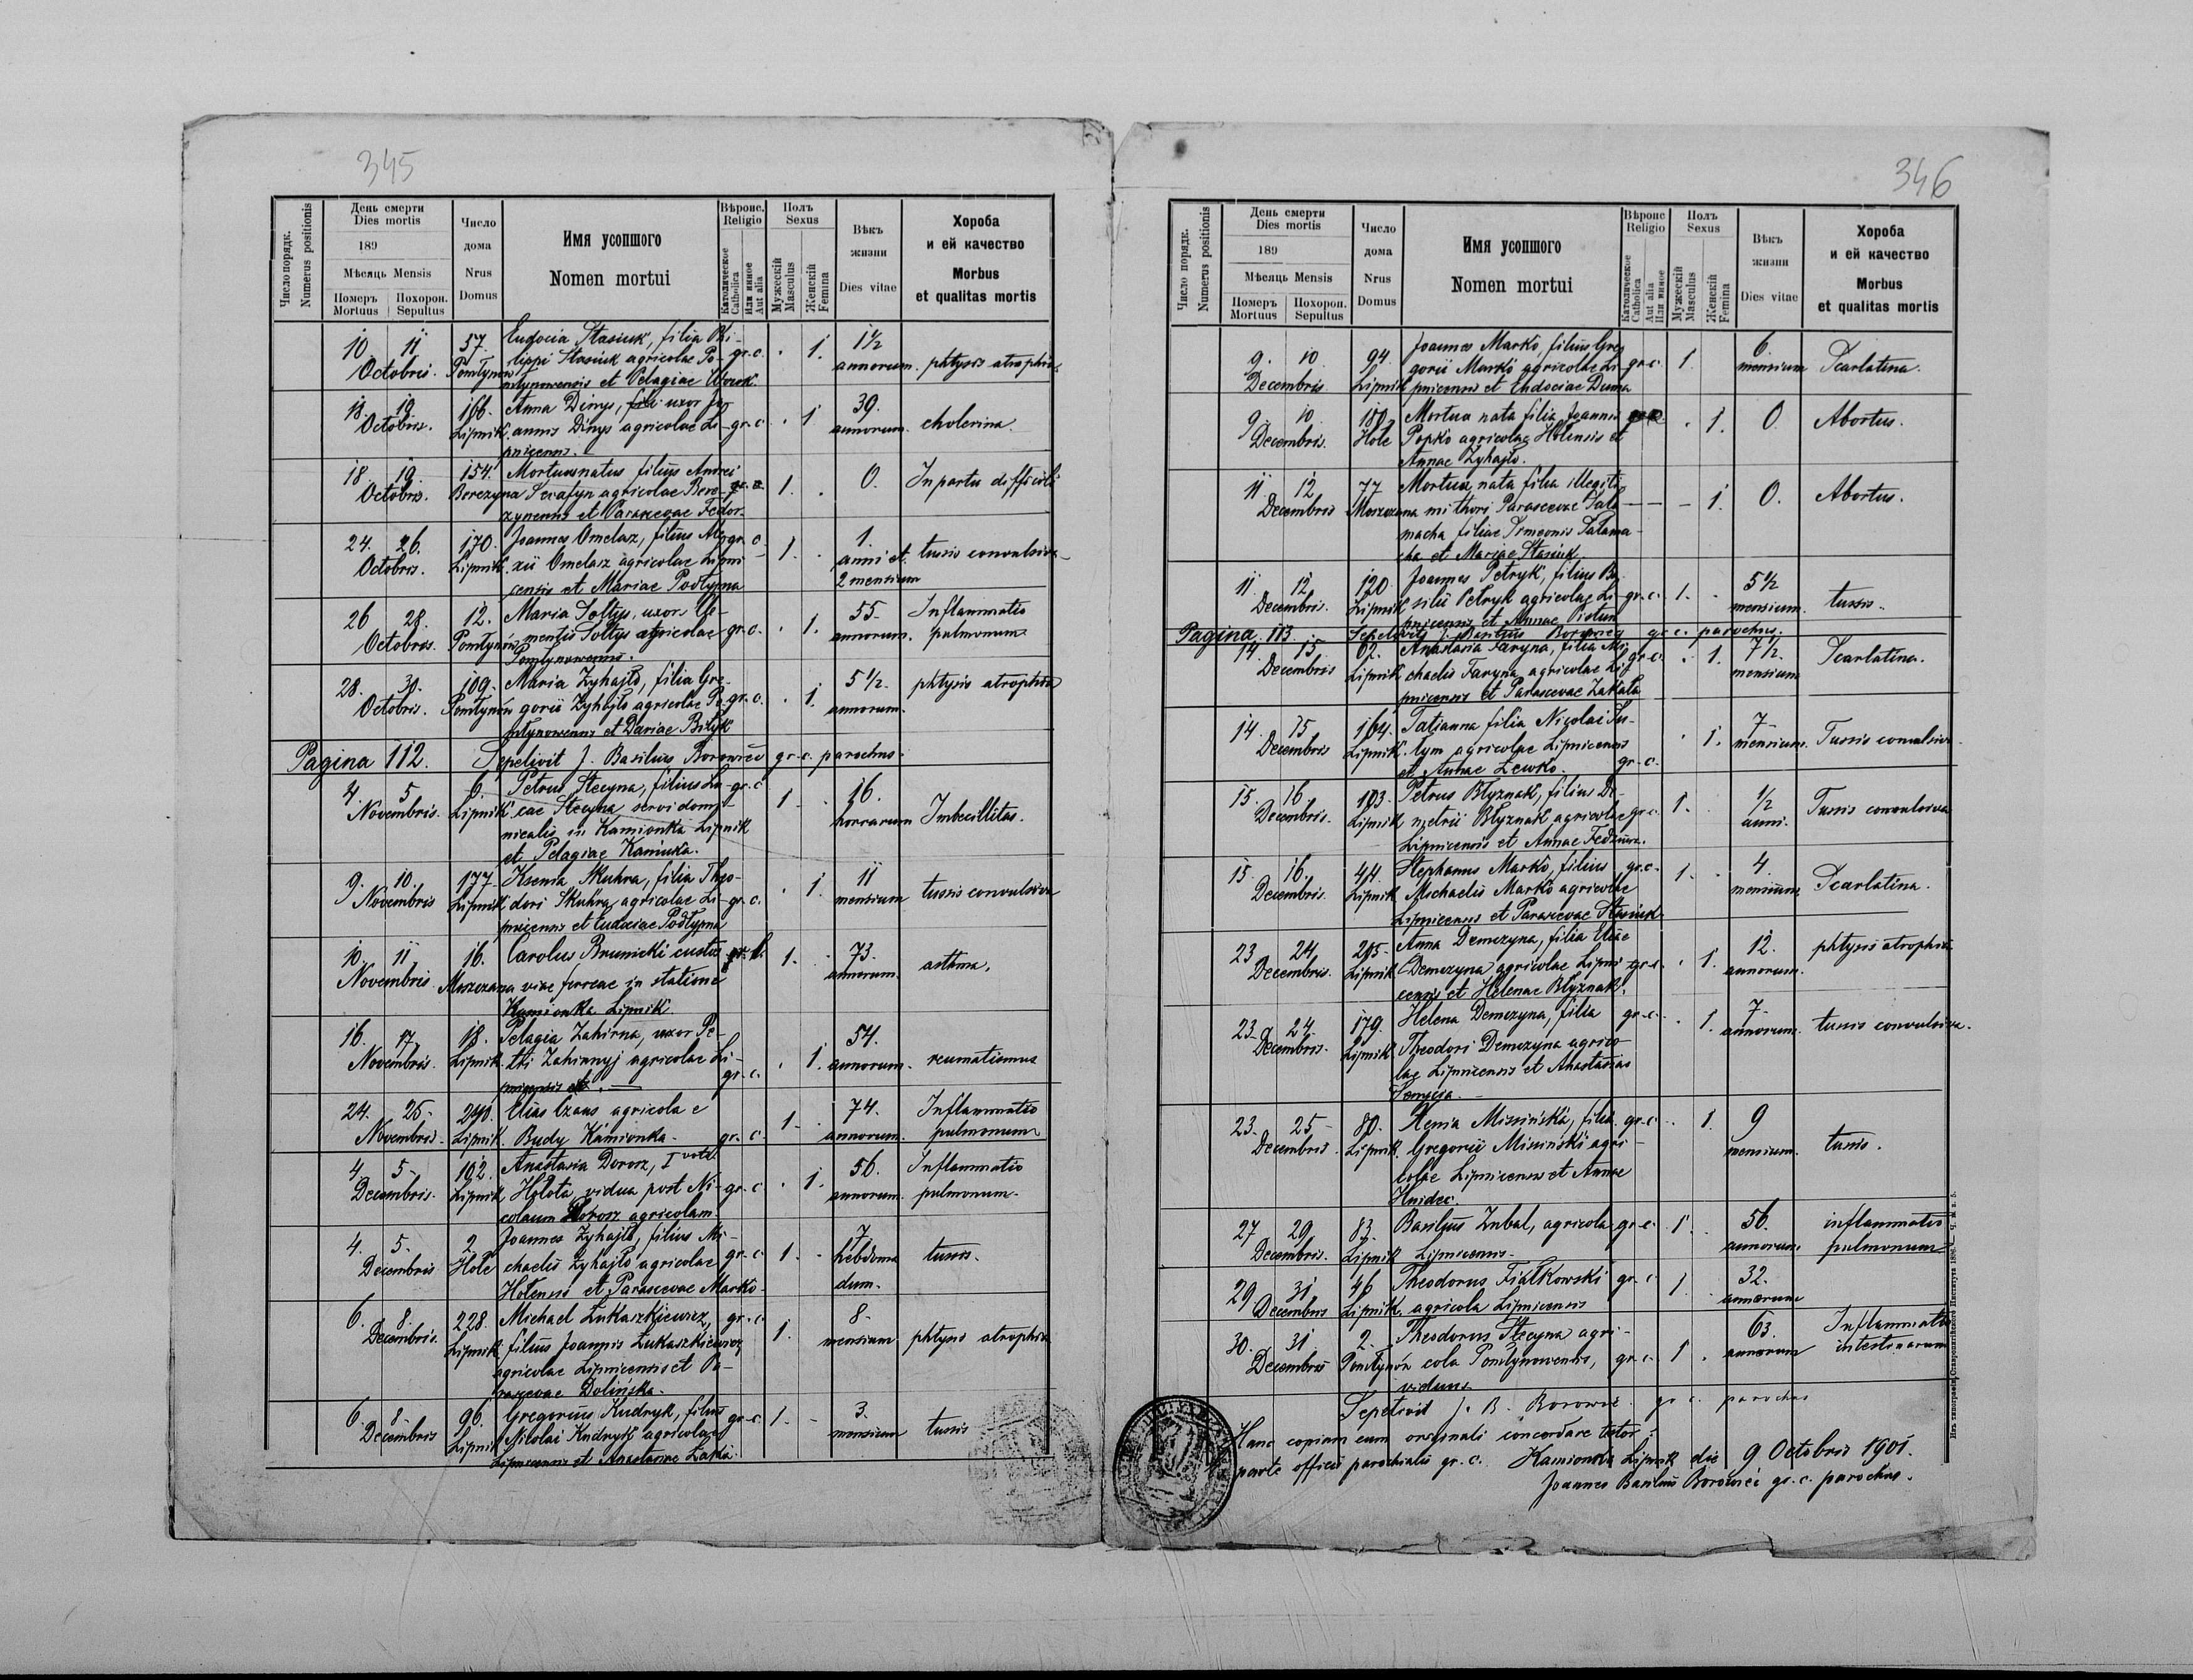 345
Число порядк.
Numerus positionis
День смерти
Dies mortis
189
Мѣсяць Mensis
Померъ Mortuus
Похорон. Sepultus
Число дома
Nrus Domus
Имя усопшого
Nomen mortui
Вѣроис. Religio
Католическое Catholica
Или иное Aut alia
Полъ Sexus
Мужескій Masculus
Женскій Femina
Вѣкъ жизни
Dies vitae
Хороба и ей качество
Morbus et qualitas mortis
10 11 57. Eudocia Stasiuk, filia Phi- 1½
Octobris. Pomłynów lippi Stasiuk agricolae Po- gr. c. . 1. annorum. phtysis atrophica
młynowensis et Pelagiae
18. 19. 166. Anna Dinys, uxor Jo- 39.
Octobris. Lipnik annis Dinys agricolae Li- gr. c. . 1 annorum. cholerina.
pnicensis.
18. 19. 154. Mortuus natus filius Andrei 0. In partu difficili
Octobris. Berezyna Serafyn agricolae Bere- 1. .
zynensis et Parascevae Fedor.
24. 26. 170. Joannes Omelasz, filius Ale- gr. c. 1.
Octobris. Lipnik. xii Omelasz agricolae Lipni- 1. . anni et tussis convulsiva
censis et Mariae Podłypna 2 mensium
26 28. 12. Maria Sołtys, uxor Cle- 55. Inflammatio
Octobris. Pomłynów mentis Sołtys agricolae gr. c. . 1. annorum. pulmonum
Pomłynowensis.
28. 30. 109. Maria Zyhajło, filia Gre- 5½. phtysis atrophica
Octobris. Pomłynów gorii Zyhajło agricolae Po- gr. c. . 1. annorum.
młynowensis et Dariae Biłyk
Pagina 112. Sepelivit J. Basilius Borowicź gr. c. parochus.
4. 5. 6. Petrus Stecyna, filius Lu- gr. c. 16.
Novembris. Lipnik cae Stecyna servi domi- 1 . horrarum Imbecillitas.
nicalis in Kamionka Lipnik
et Pelagiae Kaminka.
9. 10. 177. Ksenia Skuhra, filia Theo- 11
Novembris Lipnik dori Skuhra agricolae Li- gr. c. . 1. mensium tussis convulsiva
pnicensis et Eudociae Podłypna
10. 11. 16. Carolus Brunicki custos 1. . 73.
Novembris Moszczana viae ferreae in statione annorum. asthma.
Kamionka Lipnik.
16. 17. 18. Pelagia Zahirna, uxor Pe- 54.
Novembris. Lipnik. tri Zahirnyj agricolae Li- gr. c. . 1. annorum. reumatismus
pnicensis
24. 25. 240. Elias Czaus agricola e 1. . 74. Inflammatio
Novembris. Lipnik. Budy Kamionka. gr. c. annorum. pulmonum
4. 5. 102. Anastasia Dorosz, I voto 56. Inflammatio
Decembris. Lipnik Hołota, vidua post Ni- gr. c. . 1. annorum. pulmonum.
colaum Dorosz agricolam.
4. 5. 2. Joannes Zyhajło, filius Mi- 7
Decembris Hole chaelis Zyhajło agricolae gr. c. 1. . hebdoma tussis.
Holensis et Parascevae Marko. dum.
6. 8. 228. Michael Łukaszkiewicz, gr. c. 8.
Decembris. Lipnik filius Joannis Łukaszkiewicz 1. mensium phtysis atrophica
agricolae Lipnicensis et Pa-
rascevae Dolińska.
6. 8. 96. Gregorius Kudryk, filius gr. c. 1. . 3.
Decembris Lipnik Nikolai Kudryk agricolae mensium tussis
Lipnicensis et Anastasiae
346
Число порядк.
Numerus positionis
День смерти
Dies mortis
189
Мѣсяць Mensis
Померъ Mortuus
Похорон. Sepultus
Число дома
Nrus Domus
Имя усопшого
Nomen mortui
Вѣроис Religio
Католическое Catholica
Aut alia Или иное
Полъ Sexus
Мужескій Masculus
Женскій Femina
Вѣкъ жизни
Dies vitae
Хороба и ей качество
Morbus et qualitas mortis
9. 10. 94. Joannes Marko, filius Gre- 6
Decembris. Lipnik gorii Marko agricolae Li- gr. c. 1. mensium Scarlatina.
pnicensis et Eudociae Duma
9. 10. 180. Mortua nata filia Joannis . 1. 0 Abortus.
Decembris. Hole Popko agricolae Holensis et
Annae Zyhajło.
11. 12. 77 Mortua nata filia illegiti- 1. 0. Abortus.
Decembris Moszczana mi thori Parascevae Sala-
macha filiae Simeonis Salama-
cha et Mariae Stasiuk.
11. 12. 120. Joannes Petryk, filius Ba- 5½
Decembris. Lipnik silii Petryk agricolae Li- gr. c. 1. . mensium. tussis.
pnicensis et Annae Piotun
Pagina 113. Sepelivit J. Basilius Borowicz gr. c. parochus.
14. 15. 62. Anastasia Faryna, filia Mi- gr. c. . 1. 7½. Scarlatina.
Decembris Lipnik chaelis Faryna agricolae Li- mensium
pnicensis et Parascevae Zakała
14. 15 164. Tatianna filia Nicolai Su- . 1. 7
Decembris Lipnik. tym agricolae Lipnicensis mensium. Tussis convulsiva.
et Annae Łewko. gr. c.
15. 16. 103. Petrus Błyznak, filius De- 1. . ½
Decembris. Lipnik metrii Błyznak agricolae gr. c. anni. Tussis convulsiva
Lipnicensis et Annae
15. 16. 44. Stephanus Marko, filius gr. c. 1. . 4.
Decembris. Lipnik Michaelis Marko agricolae mensium. Scarlatina.
Lipnicensis et Parascevae Stasiuk.
23 24. 205. Anna Demczyna, filia Eliae 12. phtysis atrophica
Decembris. Lipnik Demczyna agricolae Lipni- gr. c. . 1. annorum.
censis et Helenae Błyznak.
23. 24. 179. Helena Demczyna, filia gr. c. . 1. 7
Decembris. Lipnik. Theodori Demczyna agrico- annorum. tussis convulsiva.
lae Lipnicensis et Anastasiae
23. 25. 80. Xenia Missińska, filia gr. c. . 1. 9
Decembris. Lipnik. Gregorii Missiński agri- mensium. tussis.
colae Lipnicensis et Annae
Hnidec.
27 29. 83. Basilius Zubal, agricola gr. c. 1. 56. inflammatio
Decembris. Lipnik Lipnicensis. annorum. pulmonum
29 31 46 Theodorus Fiałkowski gr. c. 1. 32.
Decembris Lipnik. agricola Lipnicensis annorum
30. 31 2. Theodorus Stecyna agri- 63. Inflammatio
Decembris Pomłynów cola Pomłynowensis, gr. c. 1 . annorum intestinarum
viduus.
Sepelivit J. B. Borowicz gr. c. parochus
Hanc copiam cum originali concordare testor.
A parte officii parochialis gr. c. Kamionka Lipnik die 9 Octobris 1901.
Joannes Basilius Borowicz gr. c. parochus.